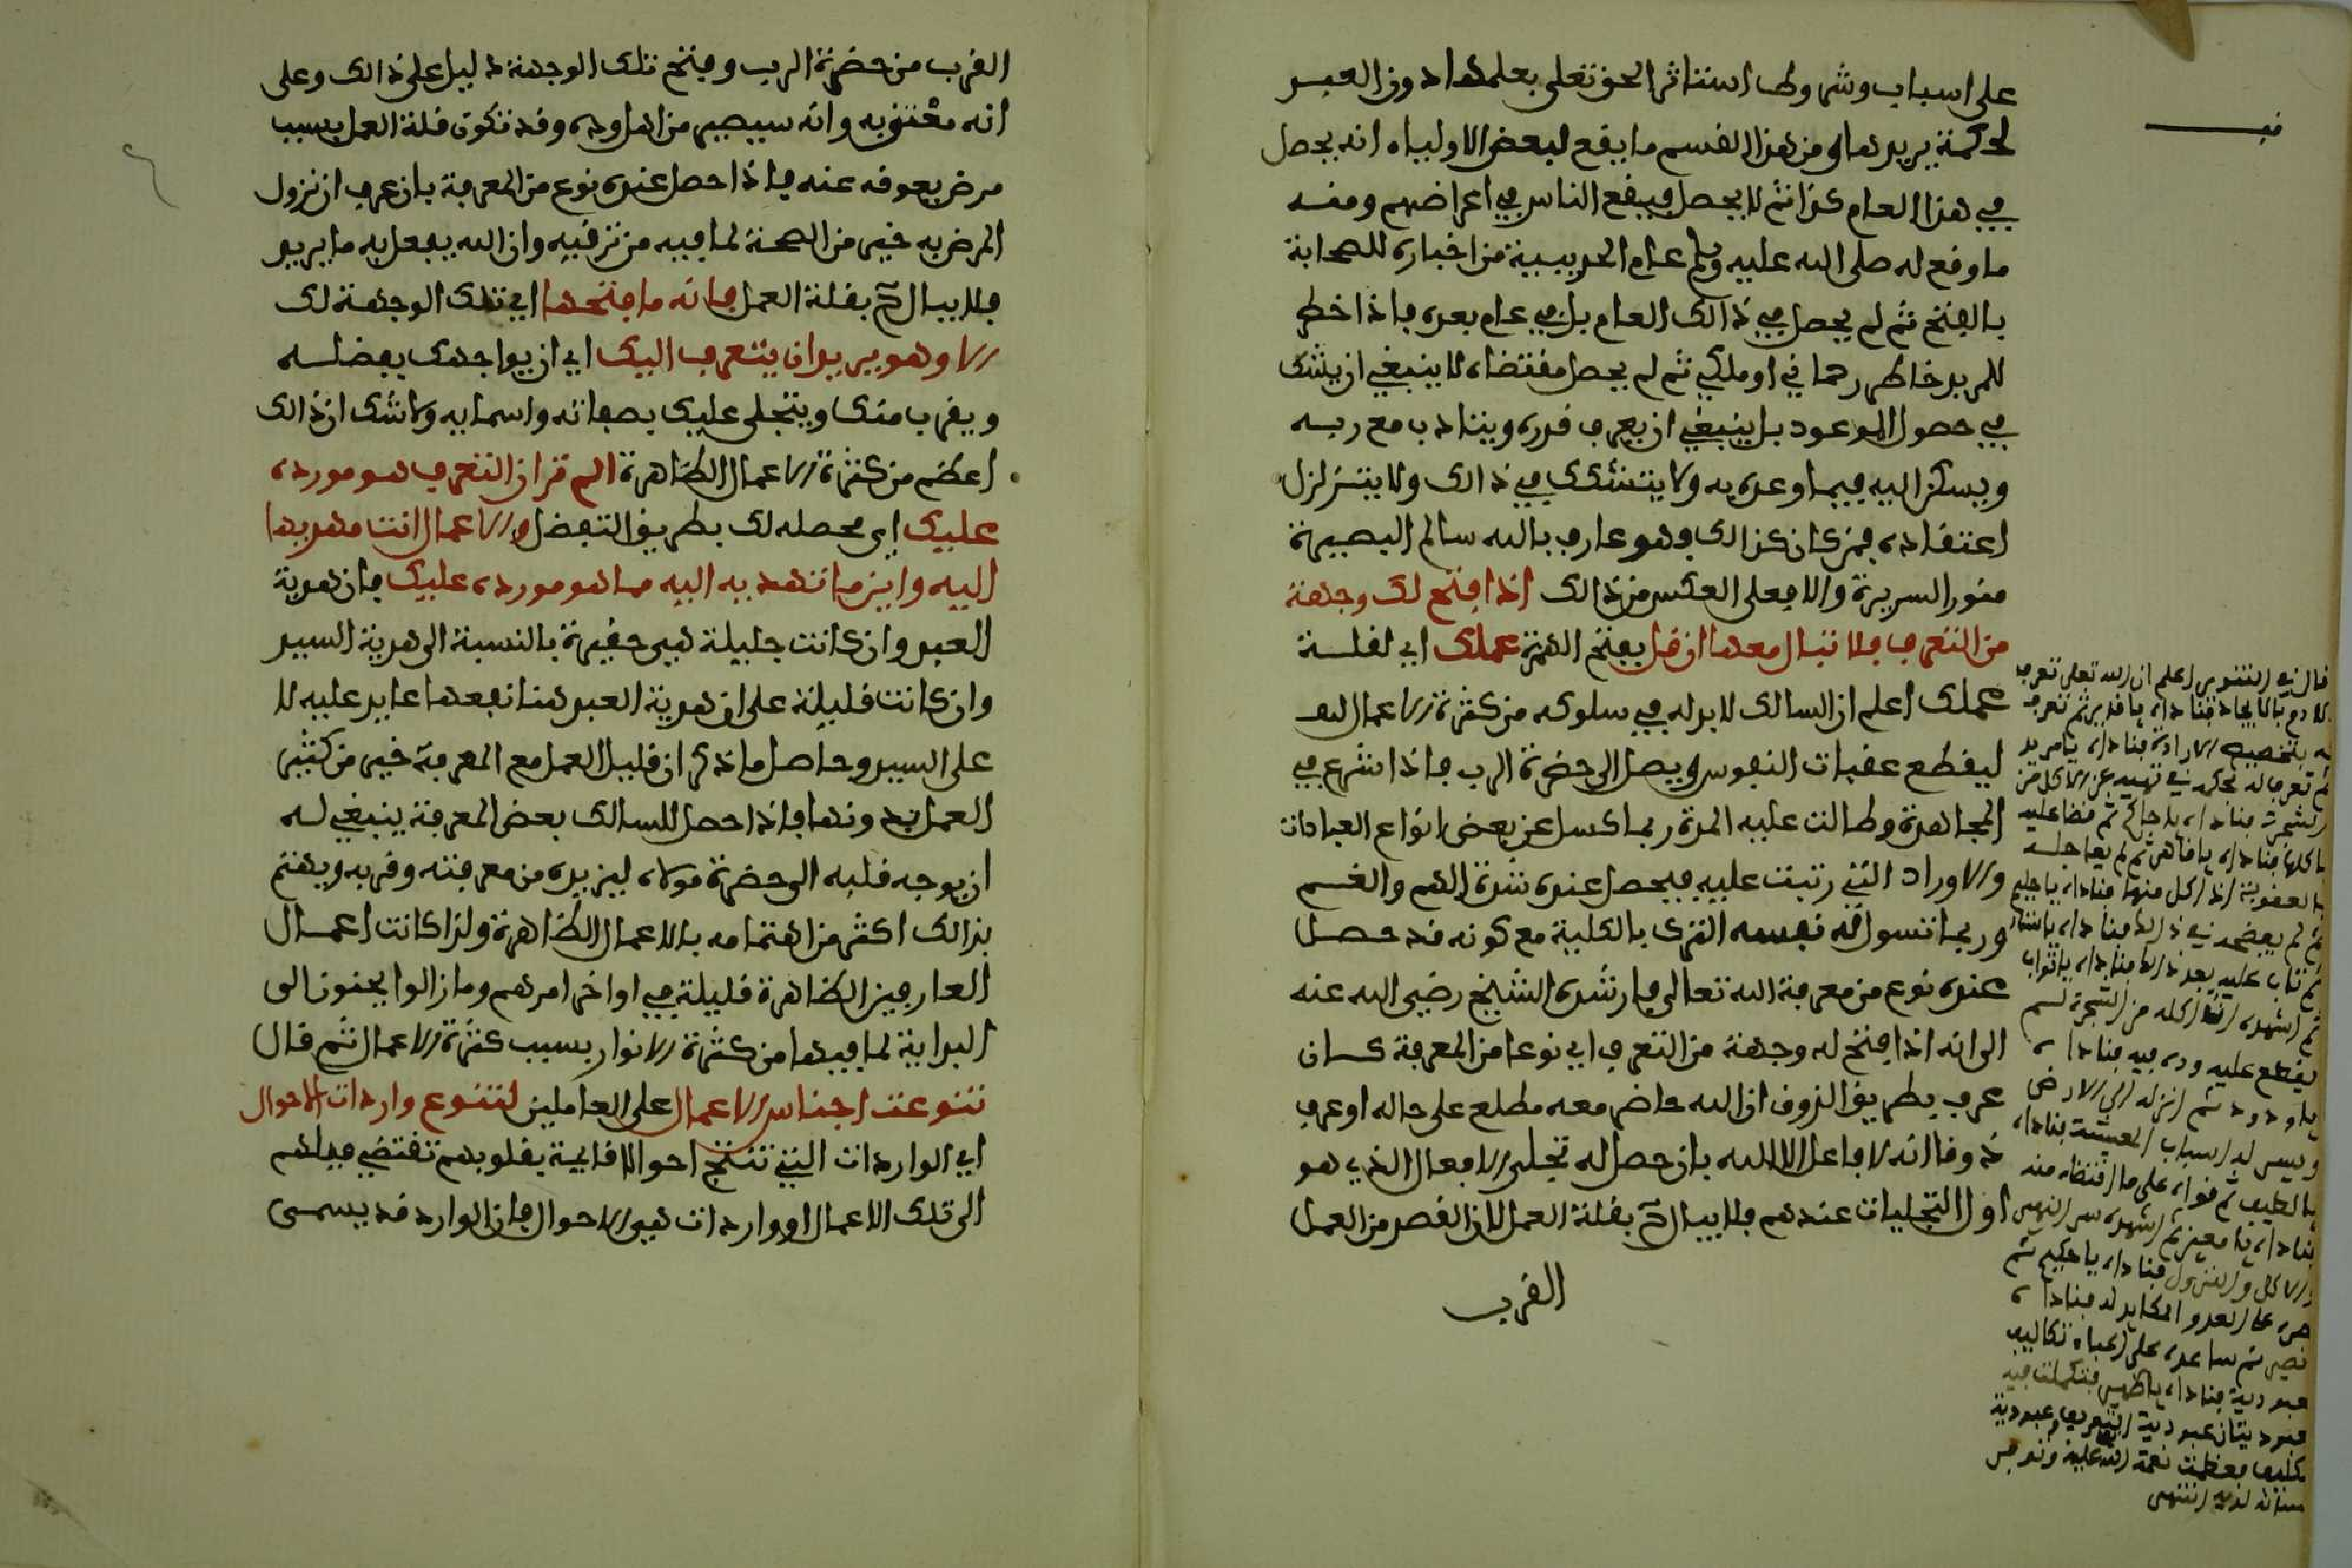 على اسباب وشروط استاثر الحق تعلى بعلمها دون العبد
لحكمة يريدها ومن هذا القسم ما يقع لبعض الاولياء انه يحصل
في هذا العام كذا ثم لا يحصل فيقع الناس في اعراضهم ومنه
ما وقع له صلى الله عليه وسلم عام الحديبية من اخباره للصحابة
بالفتح ثم لم يحصل في ذالك العام بل في عام بعده فاذا خطر
للمريد خاطر رحماني او ملكي ثم لم يحصل مقتضاه لا ينبغي ان يشك
في حصول الموعود بل ينبغي ان يعرف قدره ويتادب مع ربه
ويسكن اليه فيما وعده به ولا يتشكك في ذالك ولا يتزلزل
اعتقاده فمن كان كذالك فهو عارف بالله سالم البصيرة
منور السريرة والا فعلى العكس من ذالك اذا فتح لك وجهة
من التعرف فلا تبال معها ان قل بفتح الهمزة عملك اي لقلة
عملك اعلم ان السالك لا بد له في سلوكه من كثرة الاعمال
ليقطع عقبات النفوس ويصل الى حضرة الرب فاذا شرع في
المجاهدة وطالت عليه المدة ربما كسل عن بعض انواع العبادات
والاوراد التي رتبت عليه فيحصل عنده شدة الهم والغم
وربما تسول له نفسه الترك بالكلية مع كونه قد حصل
عنده نوع من معرفة الله تعالى فارشده الشيخ رضي الله عنه
الى انه اذا فتح له وجهة من التعرف اي نوعا من المعرفة كان
عرف بطريق الذوق ان الله حاضر معه مطلع على حاله او عرف
ذوقا انه لا فاعل الا الله بان حصل له تجلي الافعال الذي هو
اول التجليات عندهم فلا يبال بقلة العمل لان القصد من العمل
القرب
قال في التنوير اعلم ان الله تعلى تعرف
لادم بالايجاد فناداه يا قدير ثم تعرف
له بتخصيص الارادة فناداه يا مريد
ثم تعرف له بحكمه في نهيه عن الاكل من
الشجرة فناداه يا حاكم ثم قضا عليه
باكلها فناداه يا قاهر ثم لم يعاجله
بالعقوبة اذ اكل منها فناداه يا حليم
ثم لم يفضحه في ذالك فناداه يا ستار
ثم تاب عليه بعد ذالك فناداه يا تواب
ثم اشهده ان اكله من الشجرة لم
يقطع عليه وده فيه فناداه
يا ودود ثم انزله الى الارض
ويسر له اسباب المعيشة فناداه
يا لطيف ثم قواه على ما اقتضاه منه
فناداه يا معين ثم اشهده سر النهي
والاكل والنزول فناداه يا حكيم ثم
نصره على العدو المكايد له فناداه
نصير ثم ساعده على اعباء تكاليف
عبودية فناداه يا ظهير فتكملت فيه
عبوديتان عبودية التعريف وعبودية
تكليف فعظمت نعمة الله عليه
لديه انتهى
القرب من حضرة الرب وفتح تلك الوجهة دليل على ذالك وعلى
انه معتنى به وانه سيصير من اهل وده وقد تكون قلة العمل بسبب
مرض يعوقه عنه فاذا حصل عنده نوع من المعرفة بان عرف ان نزول
المرض به خير من الصحة لما فيه من ترقيه وان الله يفعل به ما يريد
فلا يبال بقلة العمل فانه ما فتحها اي تلك الوجهة لك
الا وهو يريد ان يتعرف اليك اي ان يواجهك بفضله
ويقرب منك ويتجلى عليك بصفاته واسمايه ولا شك ان ذالك
اعظم من كثرة الاعمال الظاهرة الم تر ان التعرف هو مورده
عليك اي محصله لك بطريق التفضل والاعمال انت مهديها
اليه واين ما تهديه اليه مما هو مورده عليك فان هدية
العبد وان كانت جليلة فهي حقيرة بالنسبة الى هدية السيد
وان كانت قليلة على ان هدية العبد هنا نفعها عايد عليه لا
على السيد وحاصل ما ذكر ان قليل العمل مع المعرفة خير من كثير
العمل بدونها فاذا حصل للسالك بعض المعرفة ينبغي له
ان يوجه قلبه الى حضرة مولاه ليزيده من معرفته وقربه ويهتم
بذالك اكثر من اهتمامه بالاعمال الظاهرة ولذا كانت اعمال
العارفين الظاهرة قليلة في اواخر امرهم وما زالوا يحنون الى
البداية لما فيها من كثرة الانوار بسبب كثرة الاعمال ثم قال
تنوعت اجناس الاعمال على العاملين لتنوع واردات الاحوال
اي الواردات التي تنتج احوالا قايمة بقلوبهم تقتضي ميلهم
الى تلك الاعمال او واردات هي الاحوال فان الوارد قد يسمى